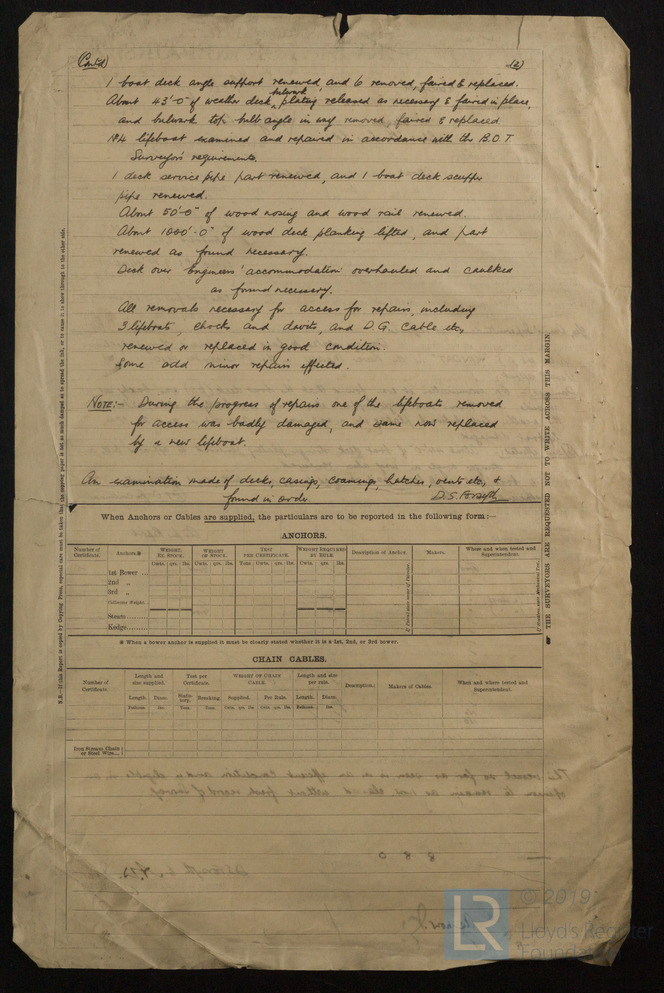 (Contd) (2)
1 boat deck angle support renewed, and 6 removed, faired & replaced.
About 43'-0" of weather deck bulwark plating released as necessary & faired in place,
and bulwark top bulb angle in way removed, faired & replaced
No 4 lifeboat examined and repaired in accordance with the B.O.T
Surveyor's requirements.
1 deck service pipe part renewed, and 1 boat deck scupper
pipe renewed.
About 50'-0" of wood nosing and wood rail renewed.
About 1000'-0" of wood deck planking lifted, and part
renewed as found necessary.
Deck over Engineers' accommodation overhauled and caulked
as found necessary.
All removals necessary for access for repairs, including
3 lifeboats, chocks and davits, and D.G. Cable etc,
renewed or replaced in good condition.
Some add minor repairs effected.
NOTE:- During the progress of repairs one of the lifeboats removed
for access was badly damaged, and same now replaced
by a new lifeboat.
An examination made of decks, casings, coamings, hatches, vents etc, &
found in order. D.S. Forsyth
When Anchors or Cables are supplied, the particulars are to be reported in the following form:—
ANCHORS.
Number of Certificate. Anchors.* WEIGHT, EX. STOCK. WEIGHT OF STOCK. TEST PER CERTIFICATE. WEIGHT REQUIRED BY RULE. Description of Anchor. Makers. Where and when tested and Superintendent.
Cwts. qrs. lbs. Cwts. qrs. lbs. Tons Cwts. qrs. lbs. Cwts. qrs. lbs.
1st Bower
2nd „
3rd „
Collective Weight.
Stream
Kedge
* When a bower anchor is supplied it must be clearly stated whether it is a 1st, 2nd, or 3rd bower.
CHAIN CABLES.
Number of Certificate. Length and size supplied. Test per Certificate. WEIGHT OF CHAIN CABLE. Length and size per rule. Description. Makers of Cables. When and where tested and Superintendent.
Length. Diam. Statutory. Breaking. Supplied. Per Rule. Length. Diam.
Fathoms. Ins. Tons. Tons. Cwts. qrs. lbs. Cwts. qrs. lbs. Fathoms. Ins.
Iron Stream Chain or Steel Wire
THE SURVEYORS ARE REQUESTED NOT TO WRITE ACROSS THIS MARGIN.
© 2019
LR Lloyd's Register
Foundation